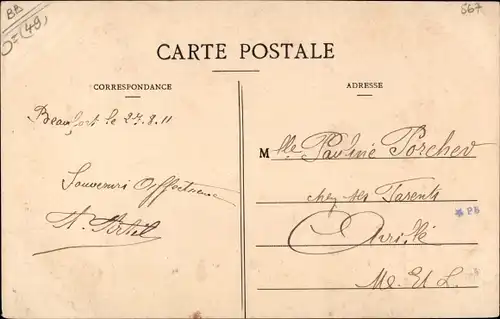 BB
(49)
567
CARTE POSTALE
CORRESPONDANCE
ADRESSE
Beaufort le 27.8.11
Souvenirs Affectueux
Mlle Pauline Porcher
chez ses Parents
Avrillé
M. Et L.
* BB